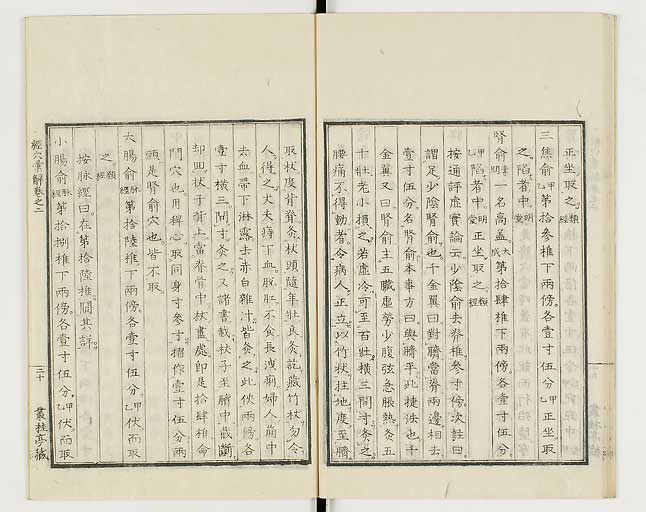 正坐取之類經
三焦俞甲乙第拾參椎下兩傍各壹寸伍分甲乙正坐取
之陷者中明堂
腎俞素問一名高蓋大成第拾肆椎下兩傍各壹寸伍分
甲乙陷者中明堂正坐取之類經
按通評虛實論云少陰俞去脊椎參寸傍次註曰
謂足少陰腎俞也千金翼曰對臍當脊兩邊相去
壹寸伍分名腎俞本事方曰與臍平此捷法也千
金翼又曰腎俞主五臟虛勞少腹弦急脹熱灸五
十壯老小損之若虛冷可至百壯橫三間寸灸之
腰痛不得動者令病人正立以竹杖拄地度至臍
取杖度背脊灸杖頭隨年壯良灸訖藏竹杖勿令
人得之丈夫痔下血脫肛不食長洩痢婦人崩中
去血帶下淋露去赤白雜汁皆灸之此俠兩傍各
壹寸橫三間寸灸之又諸書載杖子至臍中截斷
却回杖于背上當脊骨中杖盡處即是拾肆椎命
門穴也用稗心取同身寸參寸摺作壹寸伍分兩
頭是腎俞穴也皆不取
大腸俞脉經第拾陸椎下兩傍各壹寸伍分甲乙伏而取
之類經
按脉經曰在第拾陸椎間其誤
小腸俞脉經第拾捌椎下兩傍各壹寸伍分甲乙伏而取
經穴彙解卷之二
二十
叢桂亭藏